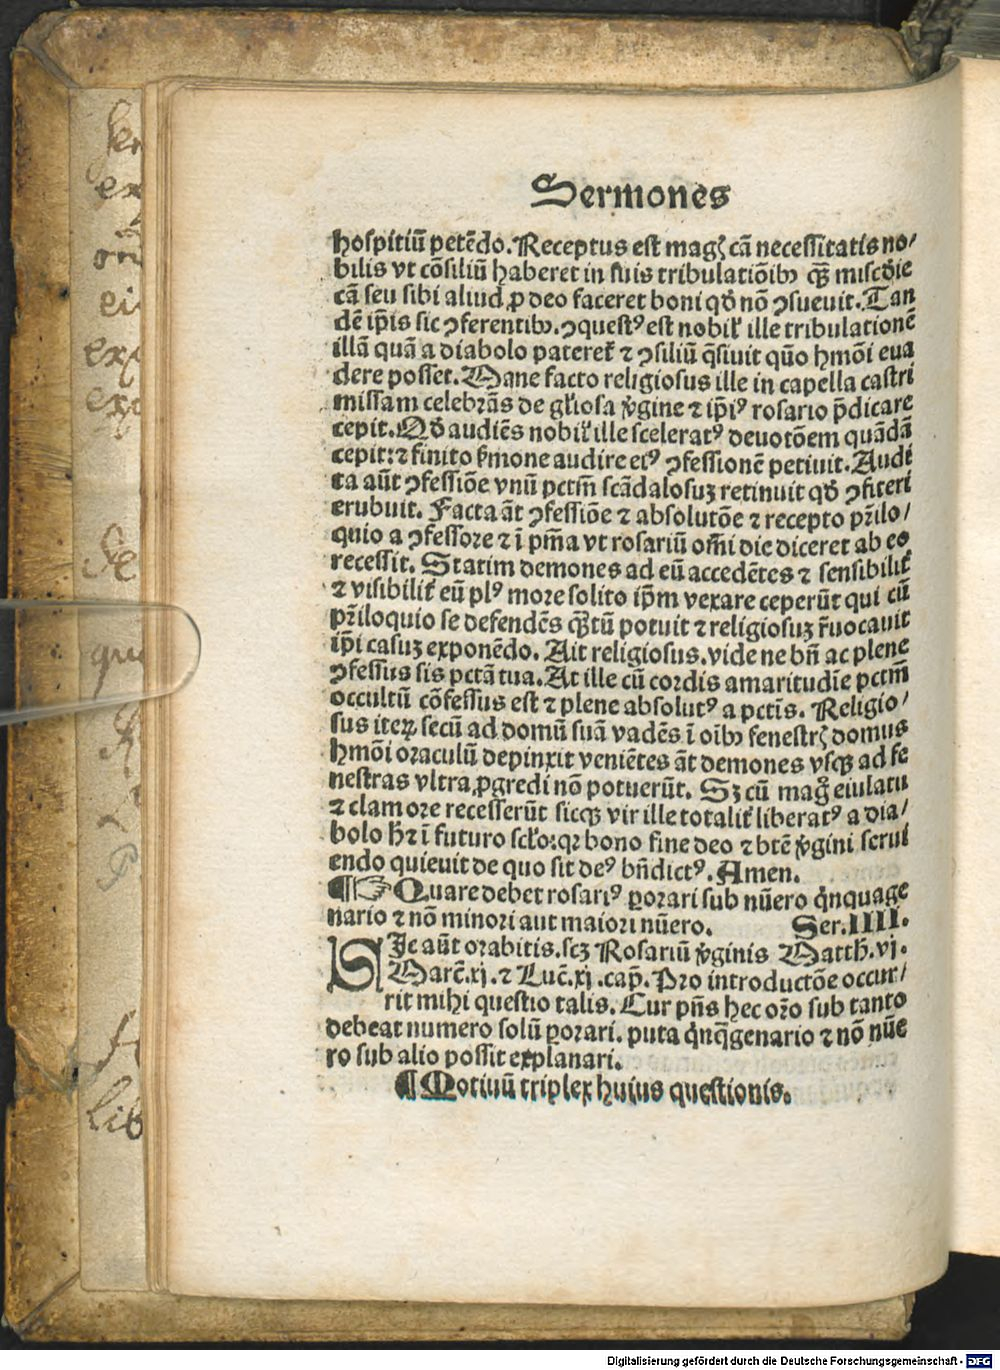 Sermones
hospitiū petēdo. Receptus est magꝭ cā necessitatis no/
bilis vt cōsiliū haberet in suis tribulatiōibꝰ qꝫ mīscdie
cā seu sibi aliud ꝓ deo faceret boni qḋ nō ꝯsueuit. Tan
dē ip̄is sic ꝯferentibꝰ. ꝯquestꝰ est nobil' ille tribulationē
illā quā a diabolo pateret̉ ⁊ ꝯsiliū q̄siuit quō hmōi eua
dere posset. Mane facto religiosus ille in capella castri
missam celebrās de gl'iosa v̓gine ⁊ ip̄iꝰ rosario p̄dicare
cepit. Qḋ audiēs nobil' ille sceleratꝰ deuotōem quādā
cepit: ⁊ finito s̓mone audire eiꝰ ꝯfessionē petiuit. Audi
ta aūt ꝯfessiōe vnū pctm̄ scādalosuꝫ retinuit qḋ ꝯfiteri
erubuit. Facta āt ꝯfessiōe ⁊ absolutōe ⁊ recepto pr̄ilo/
quio a ꝯfessore ⁊ ī pn̄ia vt rosariū om̄i die diceret ab eo
recessit. Statim demones ad eū accedētes ⁊ sensibilit̉
⁊ visibilit̉ eū plꝰ more solito ip̄m vexare ceperūt qui cū
pr̄iloquio se defendēs qꝫtū potuit ⁊ religiosuꝫ r̄uocauit
ip̄i casuꝫ exponēdo. Ait religiosus. vide ne bn̄ ac plene
ꝯfessus sis pctā tua. At ille cū cordis amaritudīe pctm̄
occultū cōfessus est ⁊ plene absolutꝰ a pctīs. Religio/
sus iteꝝ secū ad domū suā vadēs ī oībꝰ fenestrꝭ domus
hmōi oraculū depinxit veniētes āt demones vsqꝫ ad fe
nestras vltra ꝓgredi nō potuerūt. Sꝫ cū mag̊ eiulatu
⁊ clamore recesserūt sicqꝫ vir ille totalit̉ liberatꝰ a dia/
bolo hr̄ ī futuro scl'o: qꝛ bono fine deo ⁊ btē v̓gini serui
endo quieuit de quo sit deꝰ bn̄dictꝰ. Amen.
¶ ☞ Quare debet rosariꝰ ꝑorari sub nūero q̇nquage
nario ⁊ nō minori aut maiori nūero. Ser. IIII.
SIc aūt orabitis. scꝫ Rosariū v̓ginis Matth. vj.
Marc̄. xj. ⁊ Luc̄. xj. cap̄. Pro introductōe occur/
rit mihi questio talis. Cur pn̄s hec or̄o sub tanto
debeat numero solū ꝑorari. puta q̇nq̄genario ⁊ nō nūe
ro sub alio possit explanari.
¶ Motiuū triplex huius questionis.
Digitalisierung gefördert durch die Deutsche Forschungsgemeinschaft - DFG